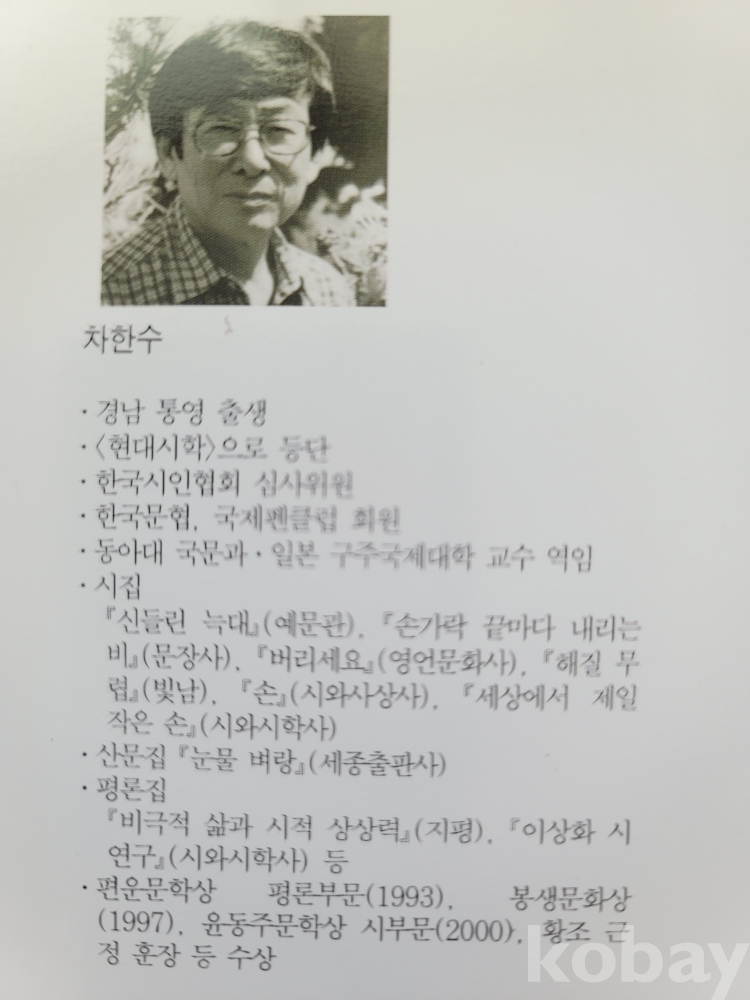 차한수
· 경남 통영 출생
· 〈현대시학〉으로 등단
· 한국시인협회 심사위원
· 한국문협, 국제펜클럽 회원
· 동아대 국문과 · 일본 구주국제대학 교수 역임
· 시집
『신들린 늑대』(예문관), 『손가락 끝마다 내리는
비』(문장사), 『버리세요』(영언문화사), 『해질 무
렵』(빛남), 『손』(시와사상사), 『세상에서 제일
작은 손』(시와시학사)
· 산문집 『눈물 벼랑』(세종출판사)
· 평론집
『비극적 삶과 시적 상상력』(지평), 『이상화 시
연구』(시와시학사) 등
· 편운문학상 평론부문(1993), 봉생문화상
(1997), 윤동주문학상 시부문(2000), 황조 근
정 훈장 등 수상
kobay